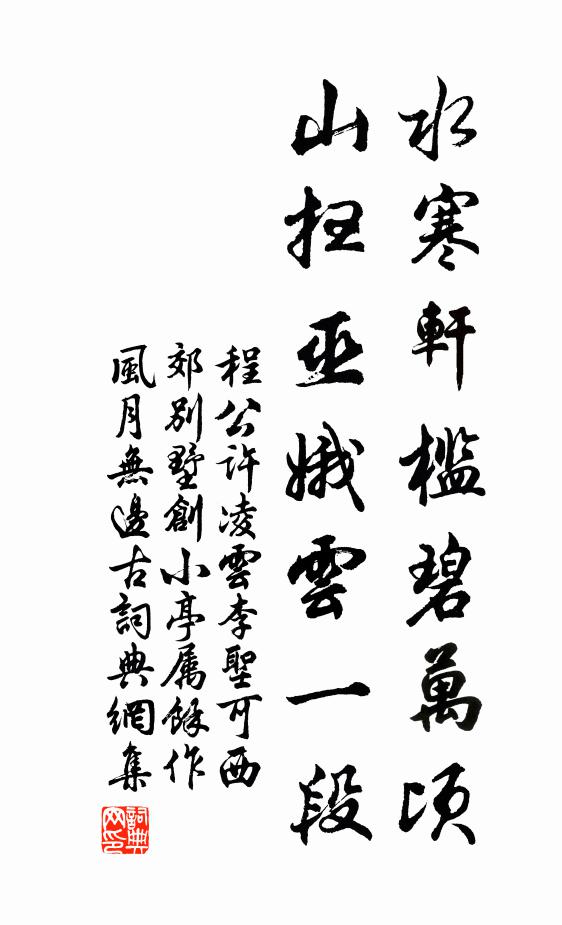 水寒軒檻碧萬頃
山巫娥雲一段
程公許凌雲李聖可西
郊別墅創小亭属餘作
風月無邊古詞典網集
詞典
网印